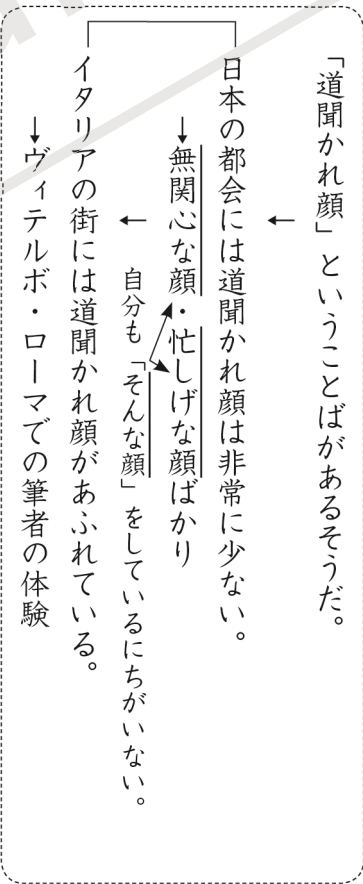 「道聞かれ顔」ということばがあるそうだ。
日本の都会には道聞かれ顔は非常に少ない。
→無関心な顔・忙しげな顔ばかり
自分も「そんな顔」をしているにちがいない。
イタリアの街には道聞かれ顔があふれている。
→ヴィテルボ・ローマでの筆者の体験